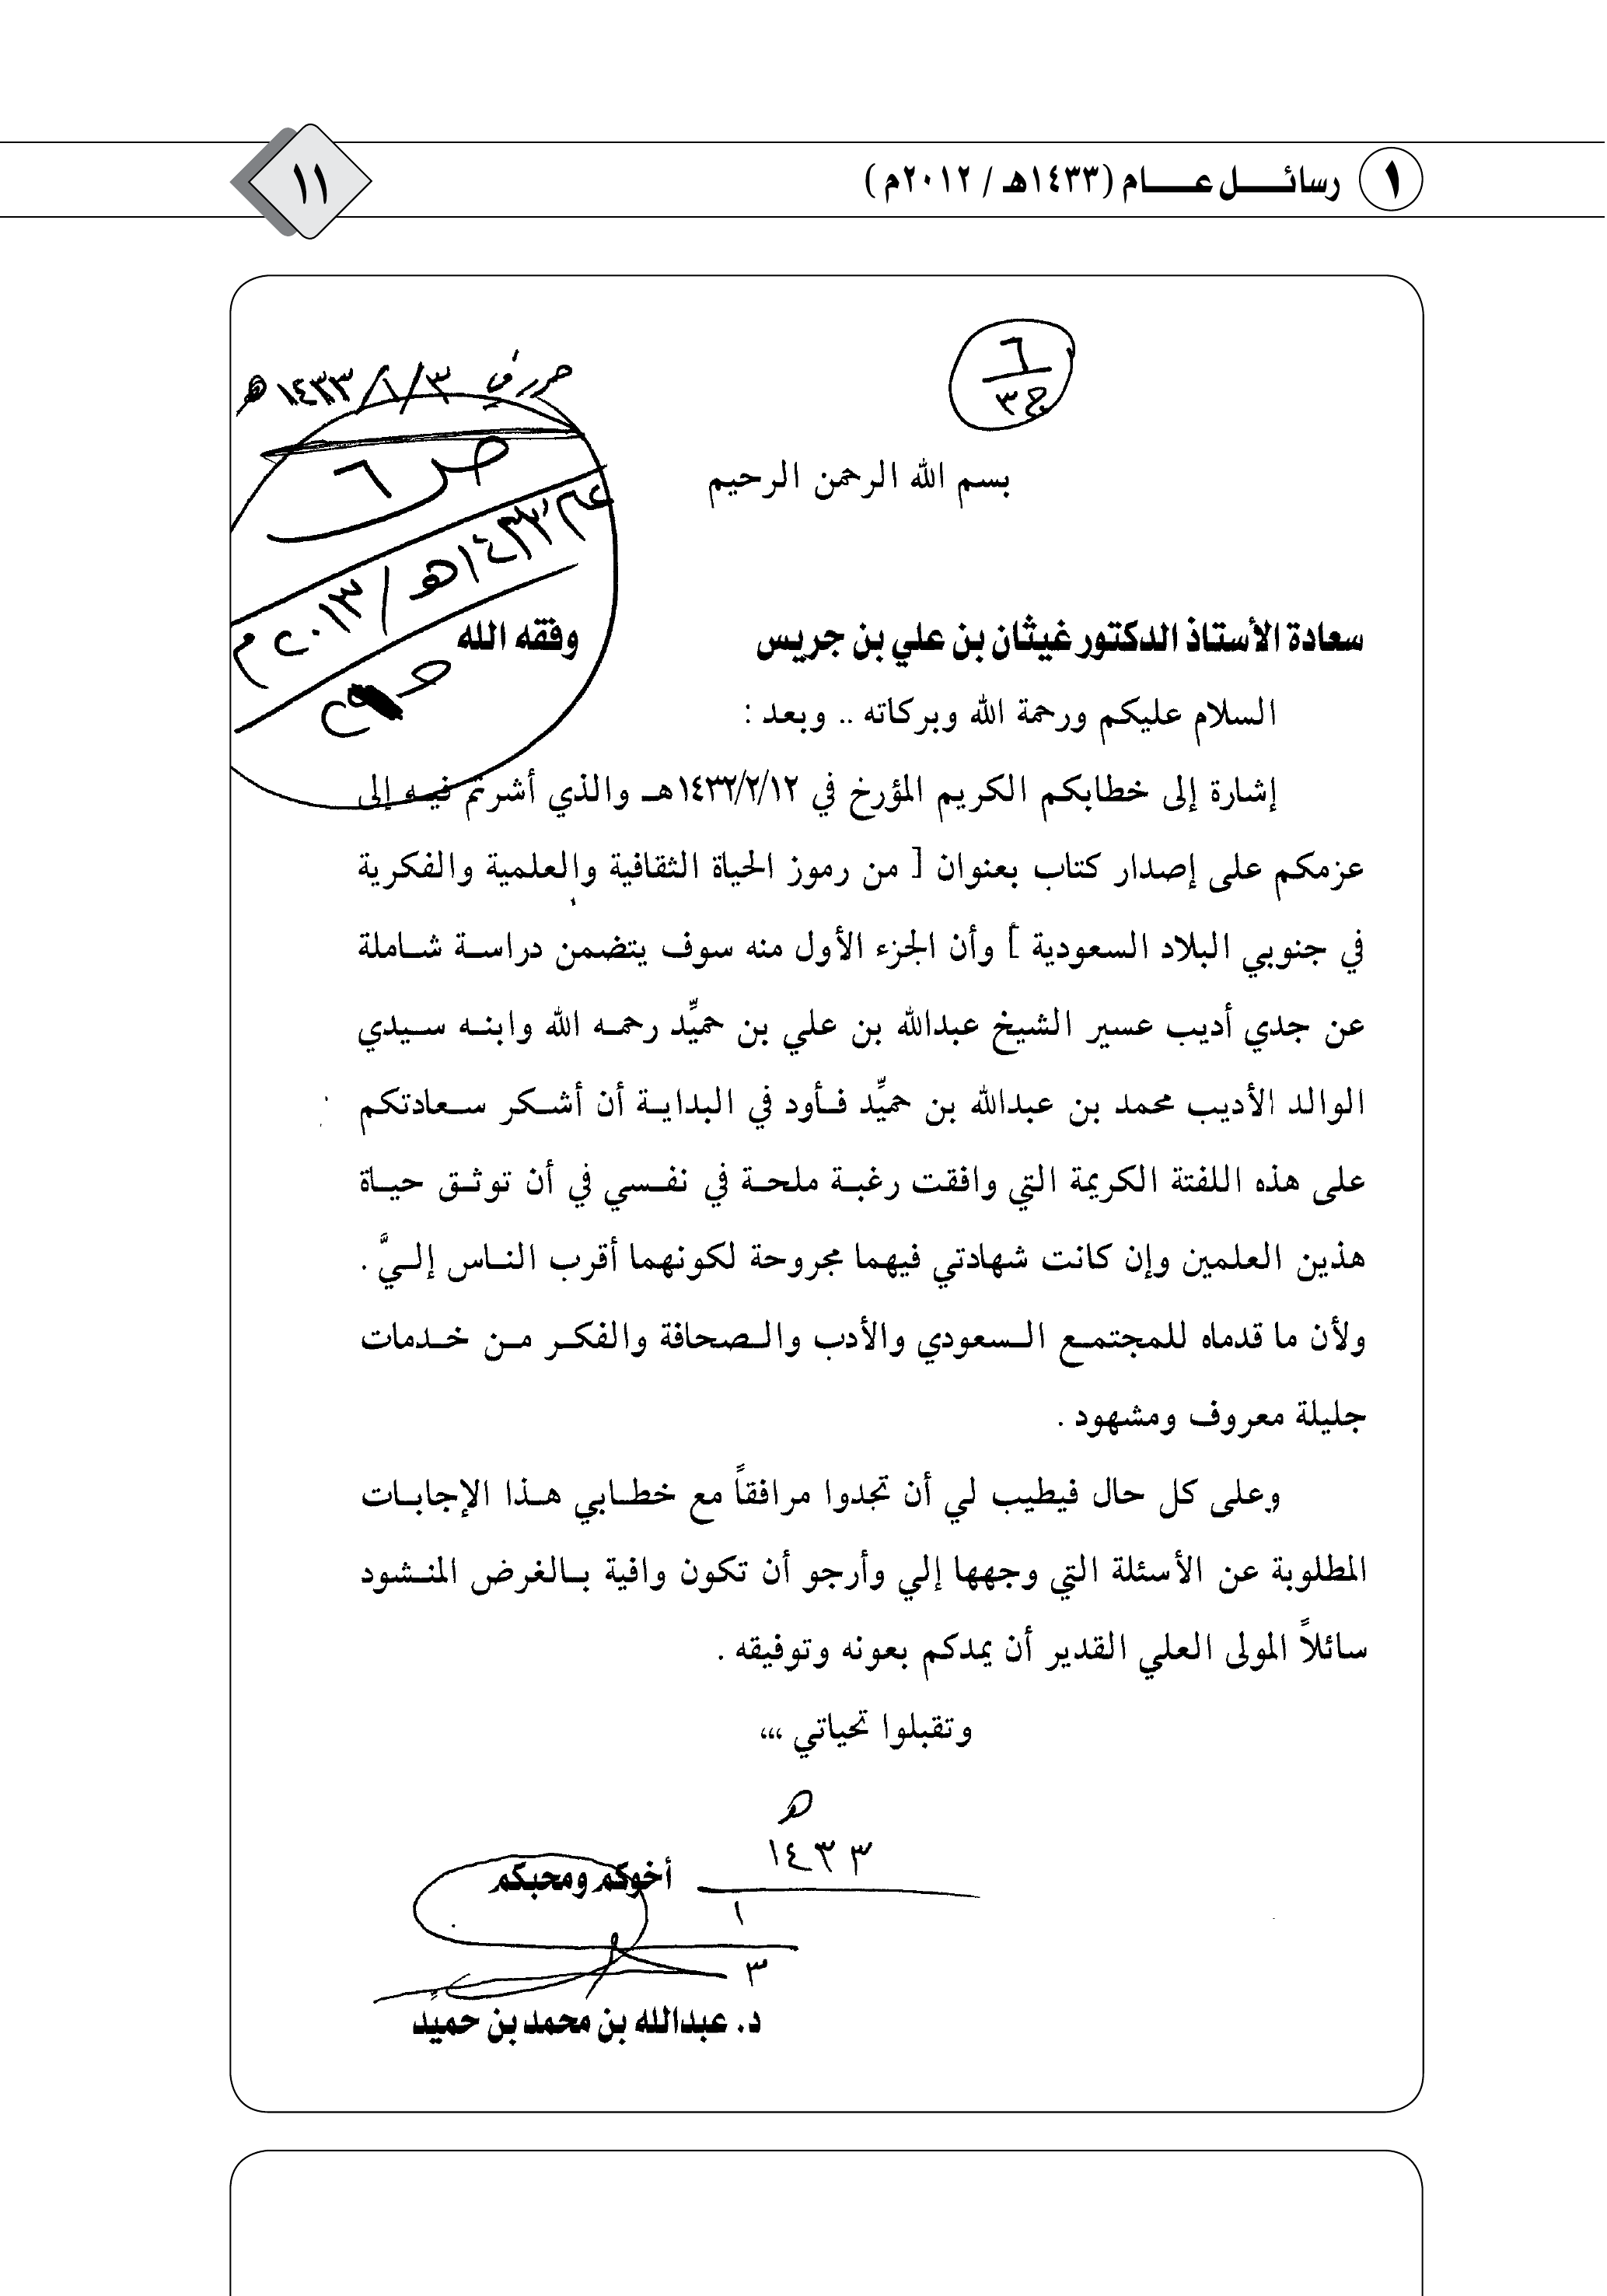 ١ رسائل عام (١٤٣٣هـ / ٢٠١٢م)
١١
٦
ج ٣
حرر في ٣/١/١٤٣٣هـ
ص ٦
عام ١٤٣٣هـ / ٢٠١٣م
بسم الله الرحمن الرحيم
سعادة الأستاذ الدكتور غيثان بن علي بن جريس وفقه الله
السلام عليكم ورحمة الله وبركاته .. وبعد :
إشارة إلى خطابكم الكريم المؤرخ في ١٤٣٢/٢/١٢هـ والذي أشرتم فيه إلى
عزمكم على إصدار كتاب بعنوان [ من رموز الحياة الثقافية والعلمية والفكرية
في جنوبي البلاد السعودية ] وأن الجزء الأول منه سوف يتضمن دراسة شاملة
عن جدي أديب عسير الشيخ عبدالله بن علي بن حميِّد رحمه الله وابنه سيدي
الوالد الأديب محمد بن عبدالله بن حميِّد فأود في البداية أن أشكر سعادتكم
على هذه اللفتة الكريمة التي وافقت رغبة ملحة في نفسي في أن توثق حياة
هذين العلمين وإن كانت شهادتي فيهما مجروحة لكونهما أقرب الناس إليَّ .
ولأن ما قدماه للمجتمع السعودي والأدب والصحافة والفكر من خدمات
جليلة معروف ومشهود .
وعلى كل حال فيطيب لي أن تجدوا مرافقاً مع خطابي هذا الإجابات
المطلوبة عن الأسئلة التي وجهها إلي وأرجو أن تكون وافية بالغرض المنشود
سائلاً المولى العلي القدير أن يمدكم بعونه وتوفيقه .
وتقبلوا تحياتي ،،،
هـ
١٤٣٣
١
٣
أخوكم ومحبكم
د. عبدالله بن محمد بن حميِّد